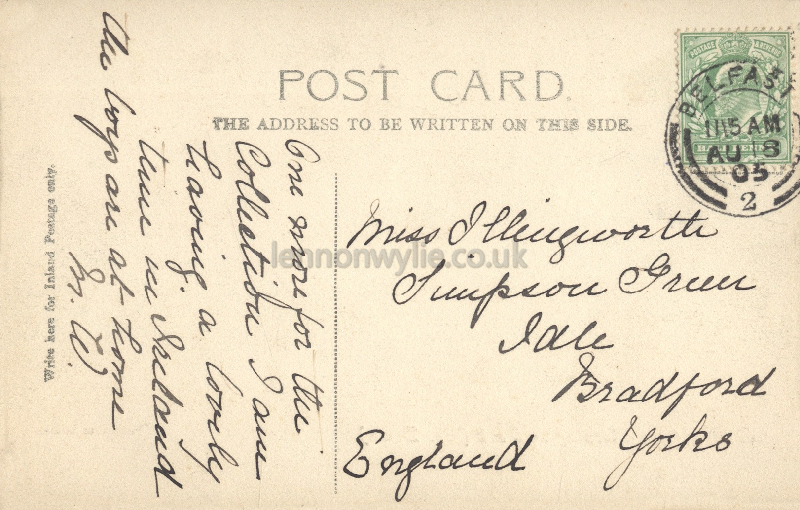 POST CARD.
THE ADDRESS TO BE WRITTEN ON THIS SIDE.
Write here for Inland Postage only.
One more for the
Collection I am
having a lovely
time in Ireland
the boys are at home
M. W.
Miss Illingworth
Simpson Green
Idle
Bradford
Yorks
England
POSTAGE
HALFPENNY
BELFAST
11 15 AM
AU 8
05
2
lennonwylie.co.uk